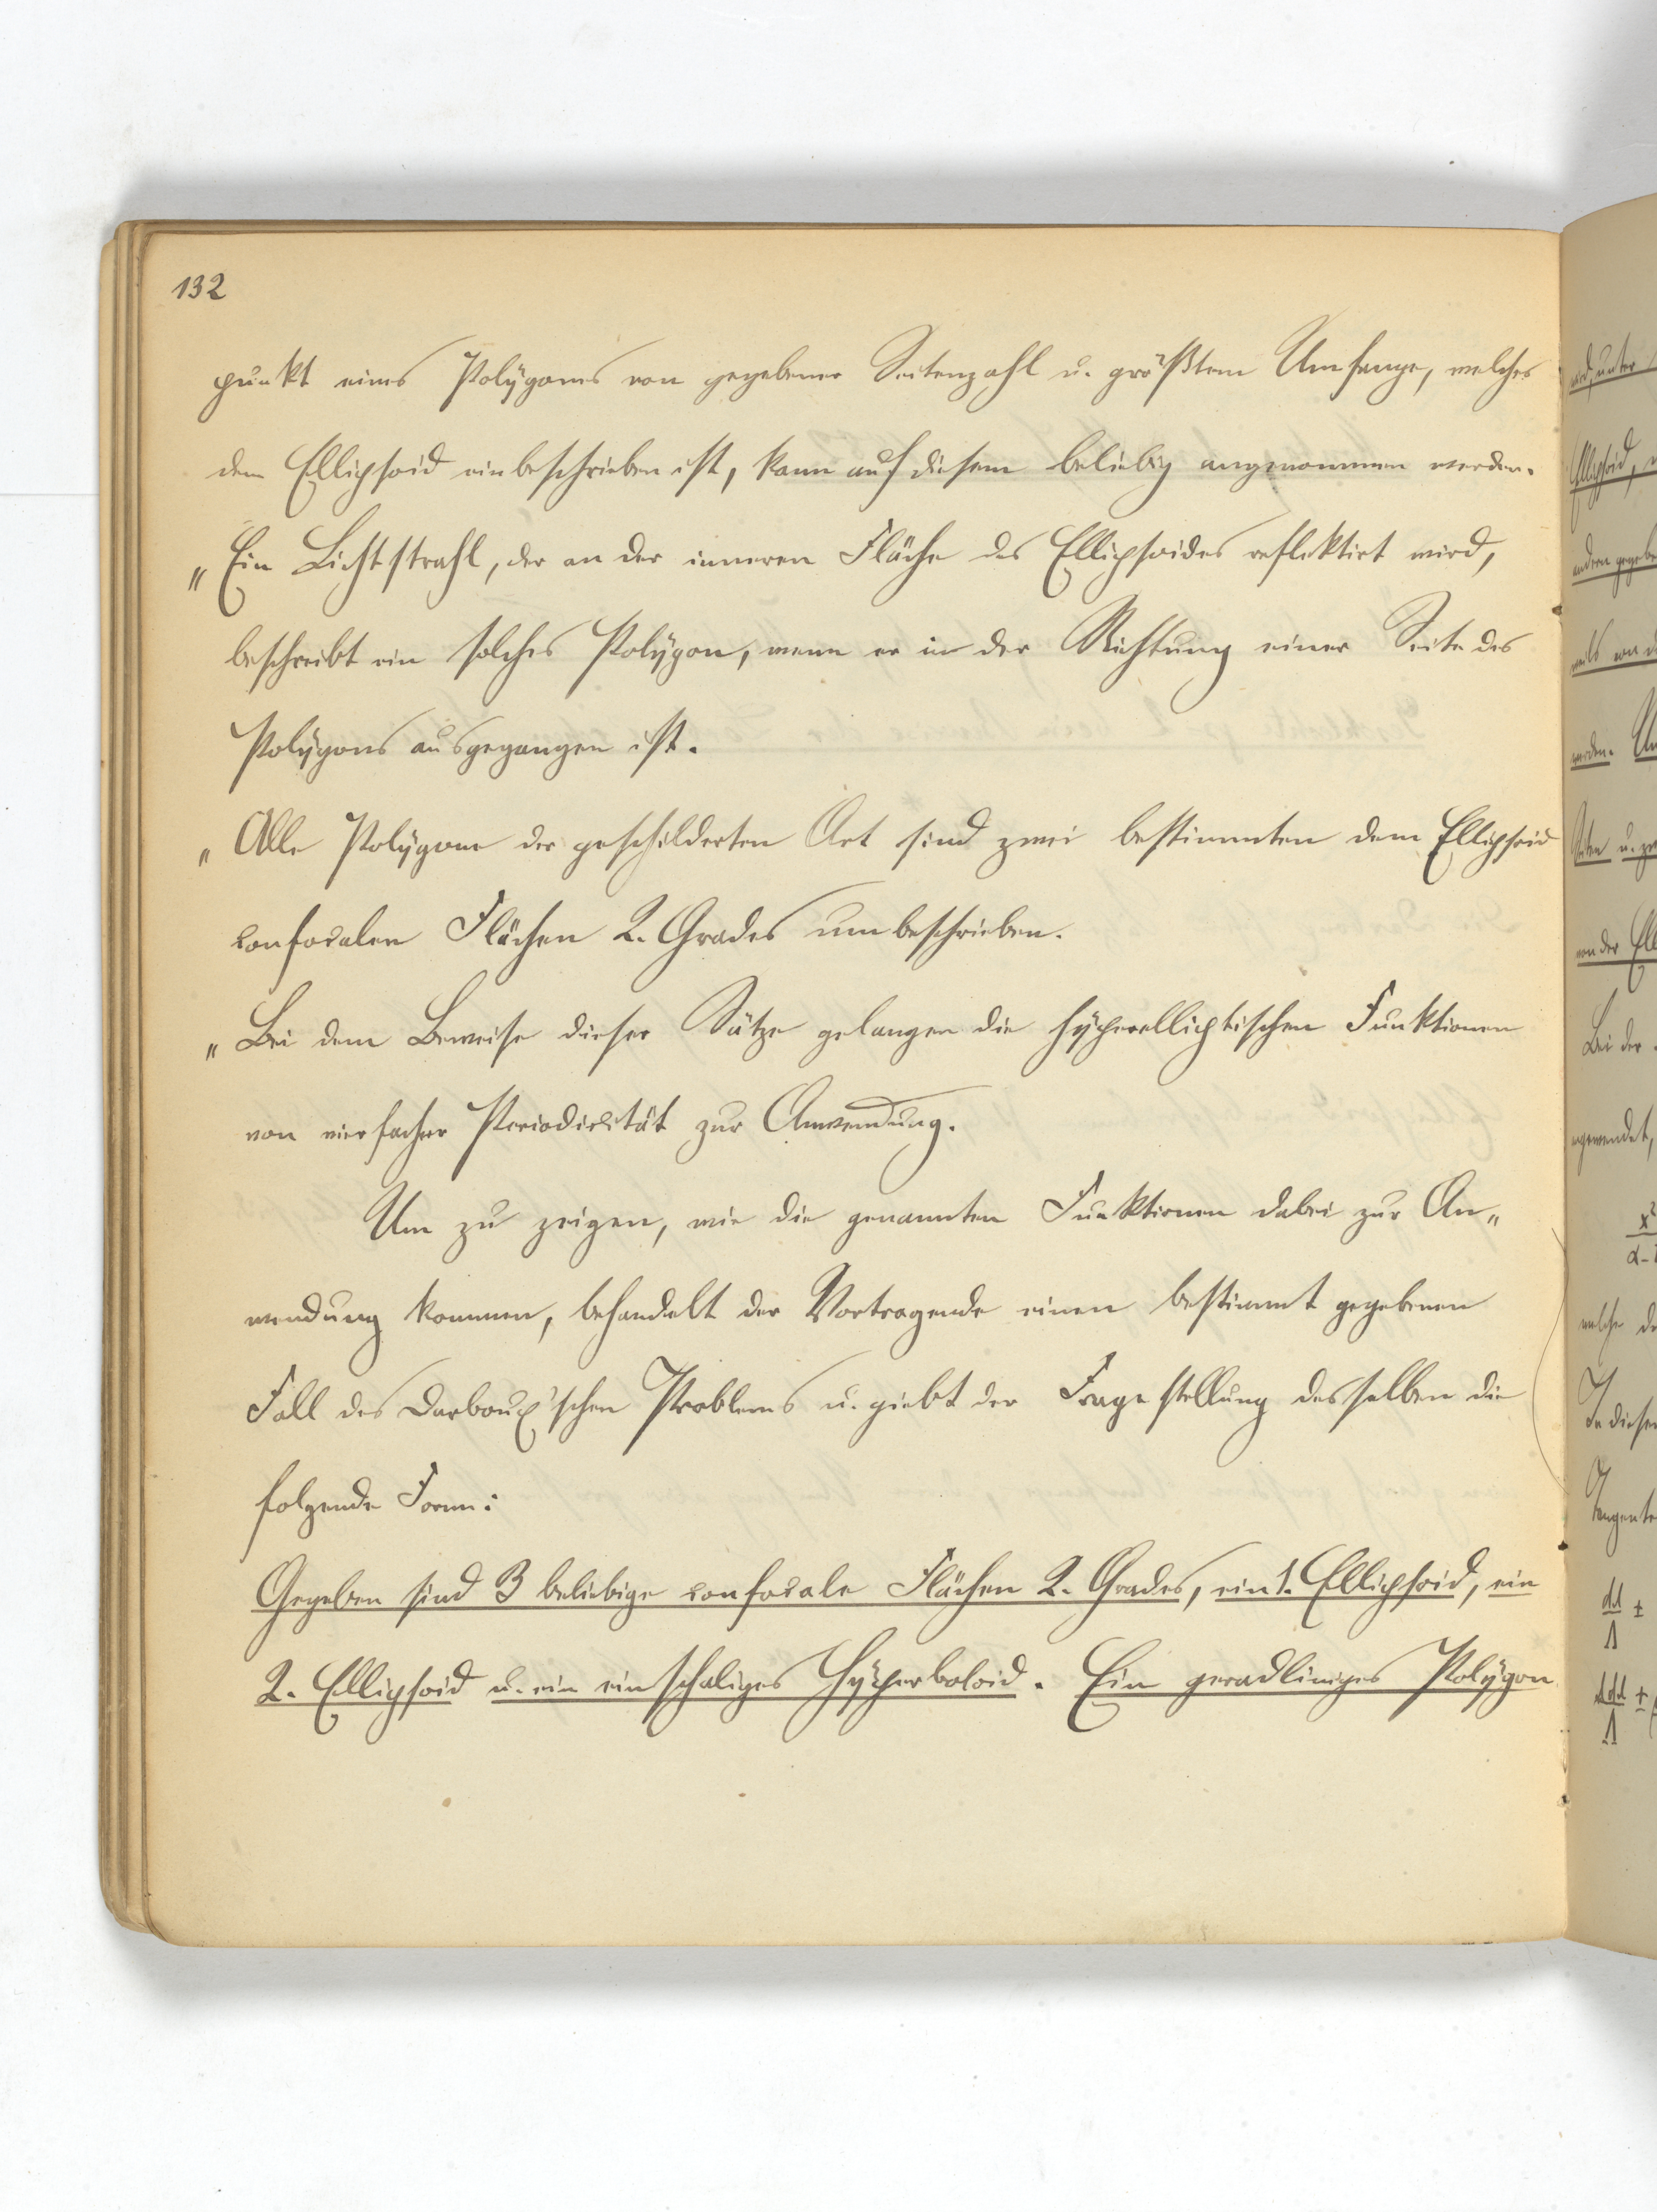 132
punkt eines Polÿgons von gegebener Seitenzahl u. größtem Umfange, welches
dem Ellipsoid einbeschrieben ist, kann auf diesem beliebig angenommen werden.
„ Ein Lichtstrahl, der an der inneren Fläche des Ellipsoides reflektirt wird,
beschreibt ein solches Polÿgon, wenn er in der Richtung einer Seite des
Polÿgons ausgegangen ist.
„ Alle Polÿgone der geschilderten Art sind zwei bestimmten dem Ellipsoid
confocalen Flächen 2. Grades umbeschrieben.
„ Bei dem Beweise dieser Sätze gelangen die hÿperelliptischen Funktionen
von vierfacher Periodicität zur Anwendung.
Um zu zeigen, wie die genannten Funktionen dabei zur An„
wendung kommen, behandelt der Vortragende einen bestimmt gegebenen
Fall des Darboux'schen Problems u. giebt der Fragestellung desselben die
folgende Form:
Gegeben sind 3 beliebige confocale Flächen 2. Grades, ein 1. Ellipsoid, ein
2. Ellipsoid u. ein einschaliges Hÿperboloid. Ein geradliniges Polÿgon